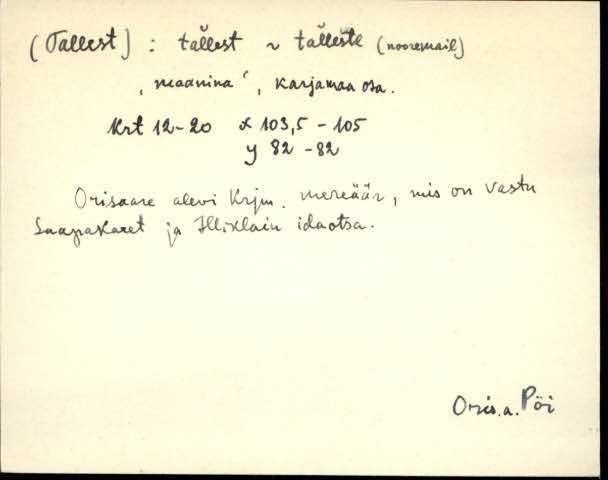 (Tallest) : tällest ~ tälleste (nooremail)
‚maanina‘, karjamaa osa.
Krt 12-20 x 103,5 - 105
y 82 - 82
Orisaare alevi Krjm. mereäär, mis on vastu
Saapakaret ja Illiklaiu idaotsa.
Oris.a. Pöi